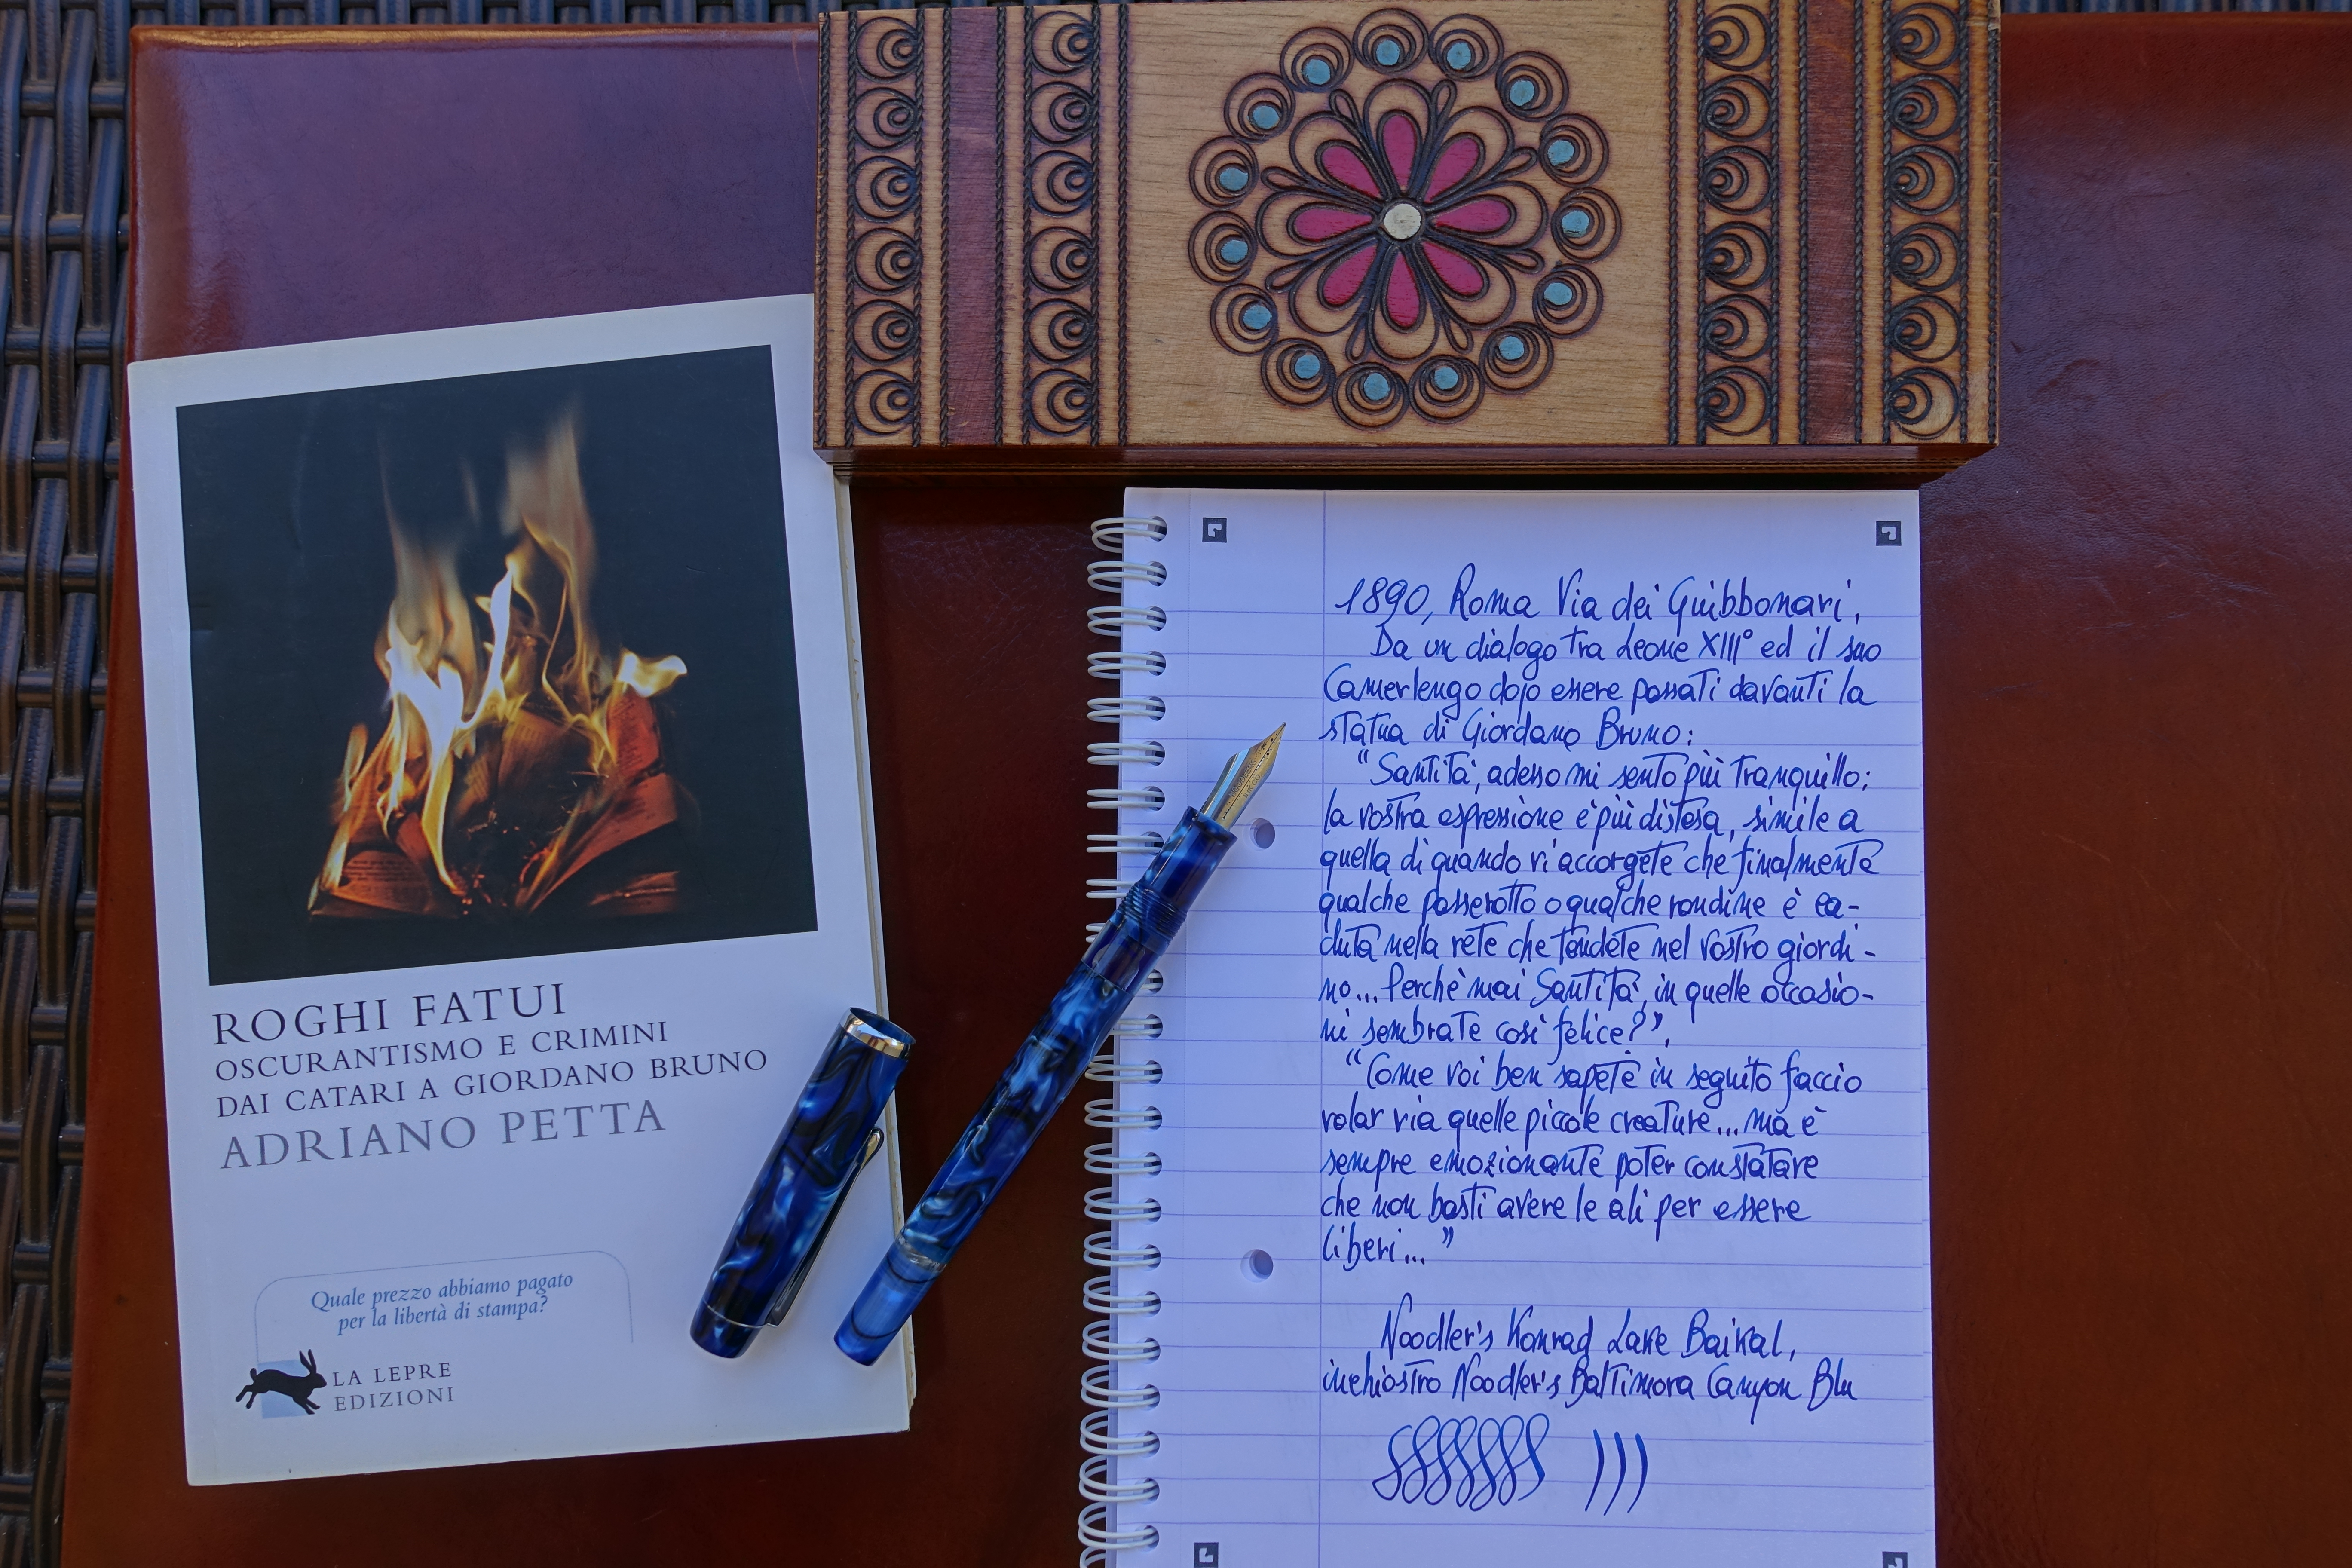 ROGHI FATUI
OSCURANTISMO E CRIMINI
DAI CATARI A GIORDANO BRUNO
ADRIANO PETTA
Quale prezzo abbiamo pagato
per la libertà di stampa?
LA LEPRE
EDIZIONI
1890, Roma Via dei Guibbonari,
Da un dialogo tra Leone XIII° ed il suo
Camerlengo dopo essere passati davanti la
statua di Giordano Bruno:
"Santità, adesso mi sento più tranquillo:
la vostra espressione è più distesa, simile a
quella di quando vi accorgete che finalmente
qualche passerotto o qualche rondine è ca-
duta nella rete che tendete nel vostro giardi-
no... Perchè mai Santità, in quelle occasio-
ni sembrate così felice?",
"Come voi ben sapete in seguito faccio
volar via quelle piccole creature... ma è
sempre emozionante poter constatare
che non basti avere le ali per essere
liberi..."
Noodler's Konrad Lake Baikal,
inchiostro Noodler's Baltimora Canyon Blu